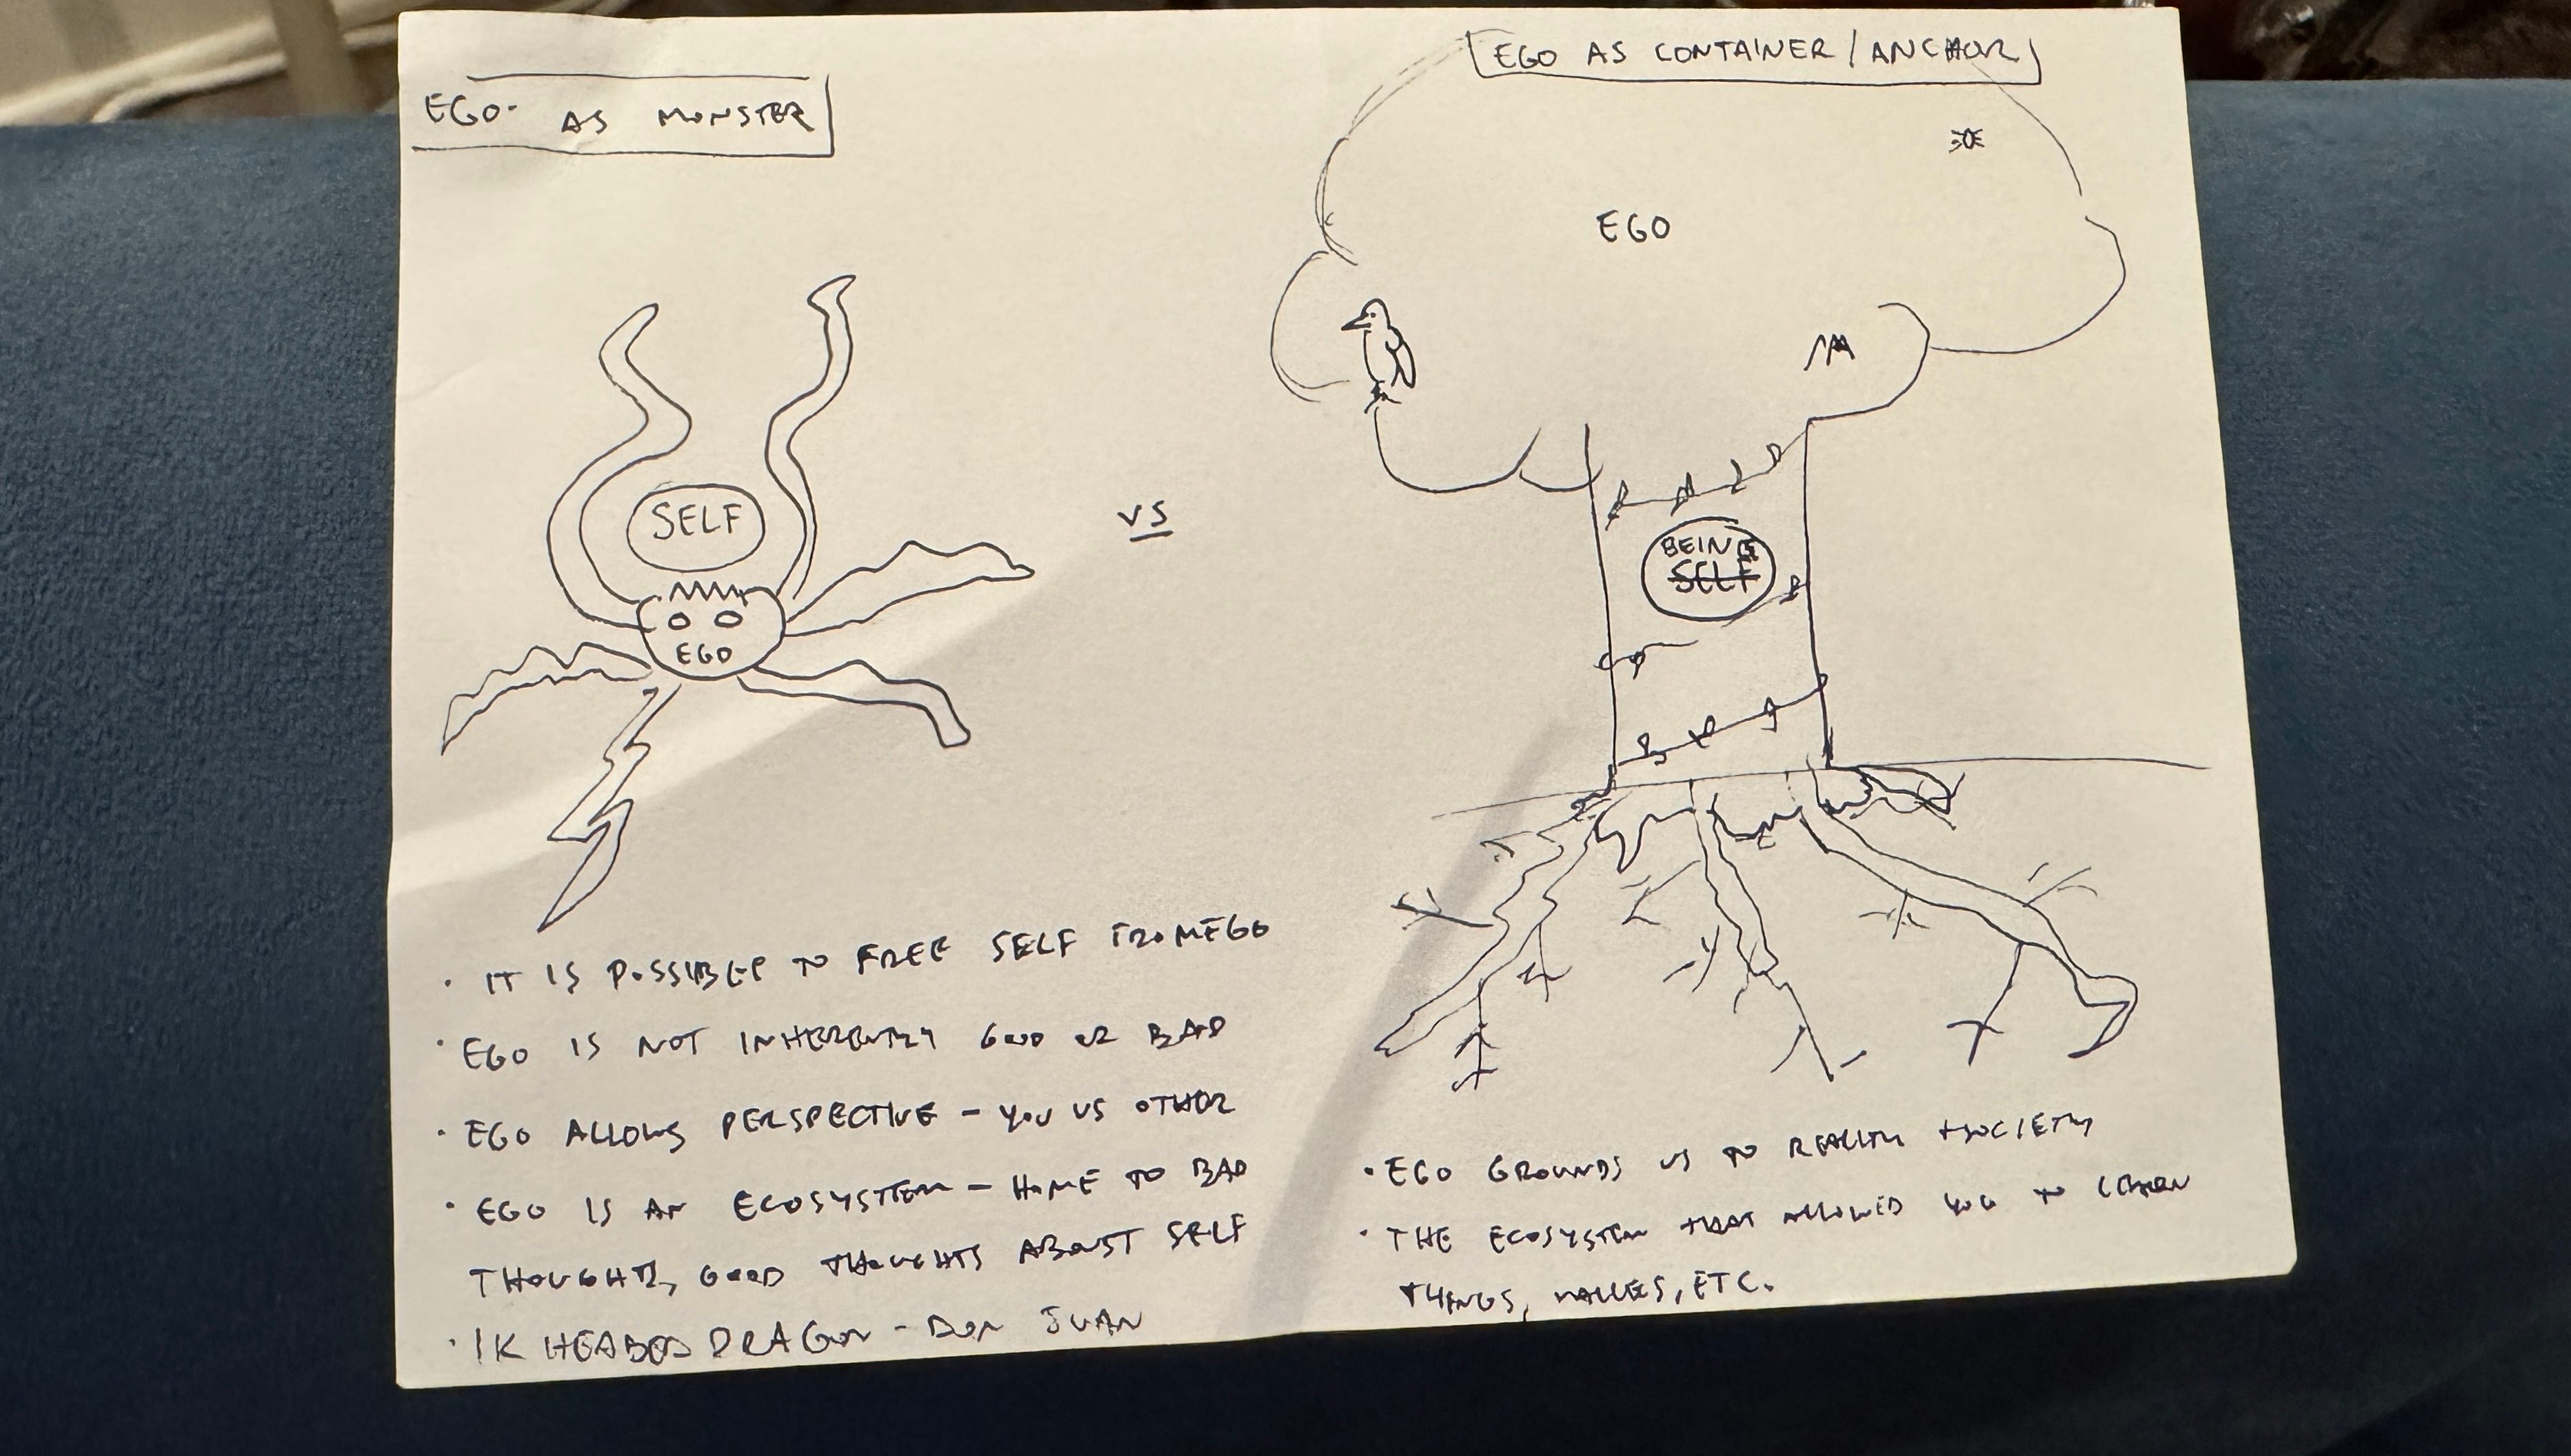 EGO AS MONSTER
SELF
EGO
VS
EGO AS CONTAINER/ANCHOR
EGO
BEING
SELF
· IT IS POSSIBLE TO FREE SELF FROM EGO
· EGO IS NOT INHERENTLY GOOD OR BAD
· EGO ALLOWS PERSPECTIVE - YOU VS OTHER
· EGO IS AN ECOSYSTEM - HOME TO BAD
THOUGHTS, GOOD THOUGHTS ABOUT SELF
· 1K HEADED DRAGON - DON JUAN
· EGO GROUNDS US TO REALITY + SOCIETY
· THE ECOSYSTEM THAT ALLOWED YOU TO LEARN
THINGS, VALUES, ETC.